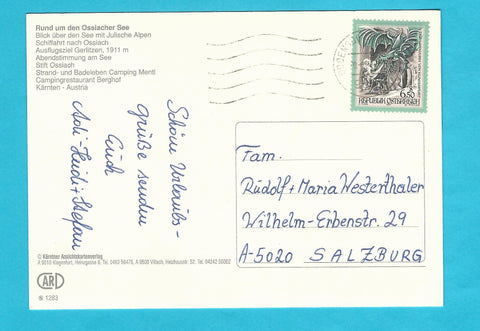 Rund um den Ossiacher See
Blick über den See mit Julische Alpen
Schiffahrt nach Ossiach
Ausflugsziel Gerlitzen, 1911 m
Abendstimmung am See
Stift Ossiach
Strand- und Badeleben Camping Mentl
Campingrestaurant Berghof
Kärnten - Austria
Schöne Urlaubs-
grüße senden
Euch
Adi-Heidi+Stefan
© Kärntner Ansichtskartenverlag
A 9010 Klagenfurt, Herrngasse 6, Tel. 0463 56475, A 9503 Villach, Tel. 04242 56062
CARD
S 1283
6.50
REPUBLIK ÖSTERREICH
Fam.
Rudolf+Maria Westerthaler
Wilhelm-Erbenstr. 29
A-5020 SALZBURG